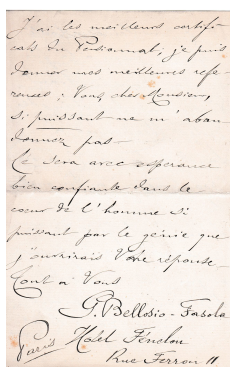 J'ai les meilleurs certifi-
cats du Pensionnat, je puis
donner mes meilleures refe-
rences ; Vous, cher Monsieur,
si puissant ne m'aban
donnez pas—
Ce sera avec esperance
bien confiante dans le
cœur de l'homme si
puissant par le génie que
j'ouvrirais Votre réponse
Tout à Vous
G. Bellosio-Fasola
Paris Hôtel Fénelon
Rue Ferrou 11